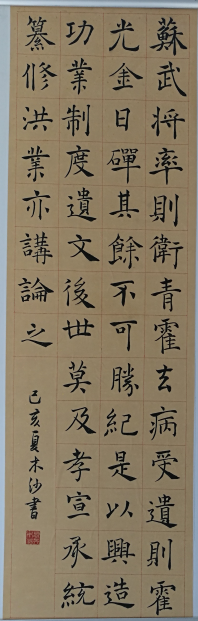 蘇武将率則衛青霍去病受遺則霍
光金日磾其餘不可勝紀是以興造
功業制度遺文後世莫及孝宣承統
纂修洪業亦講論之
己亥夏木沙書